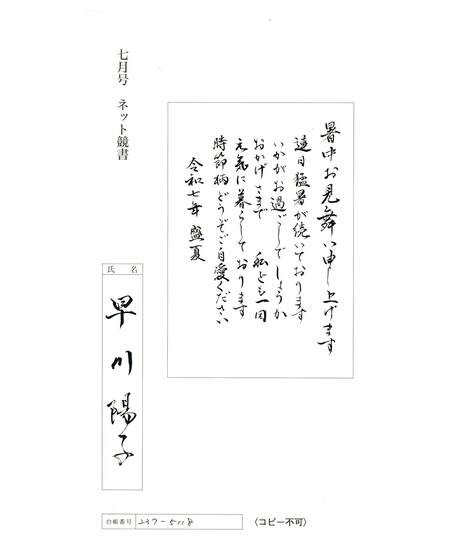 七月号 ネット競書
暑中お見舞い申し上げます
連日猛暑が続いております
いかがお過ごしでしょうか
おかげさまで 私ども一同
元気に暮らしております
時節柄どうぞご自愛ください
令和七年 盛夏
氏名
早川陽子
台帳番号 237-5118
〈コピー不可〉